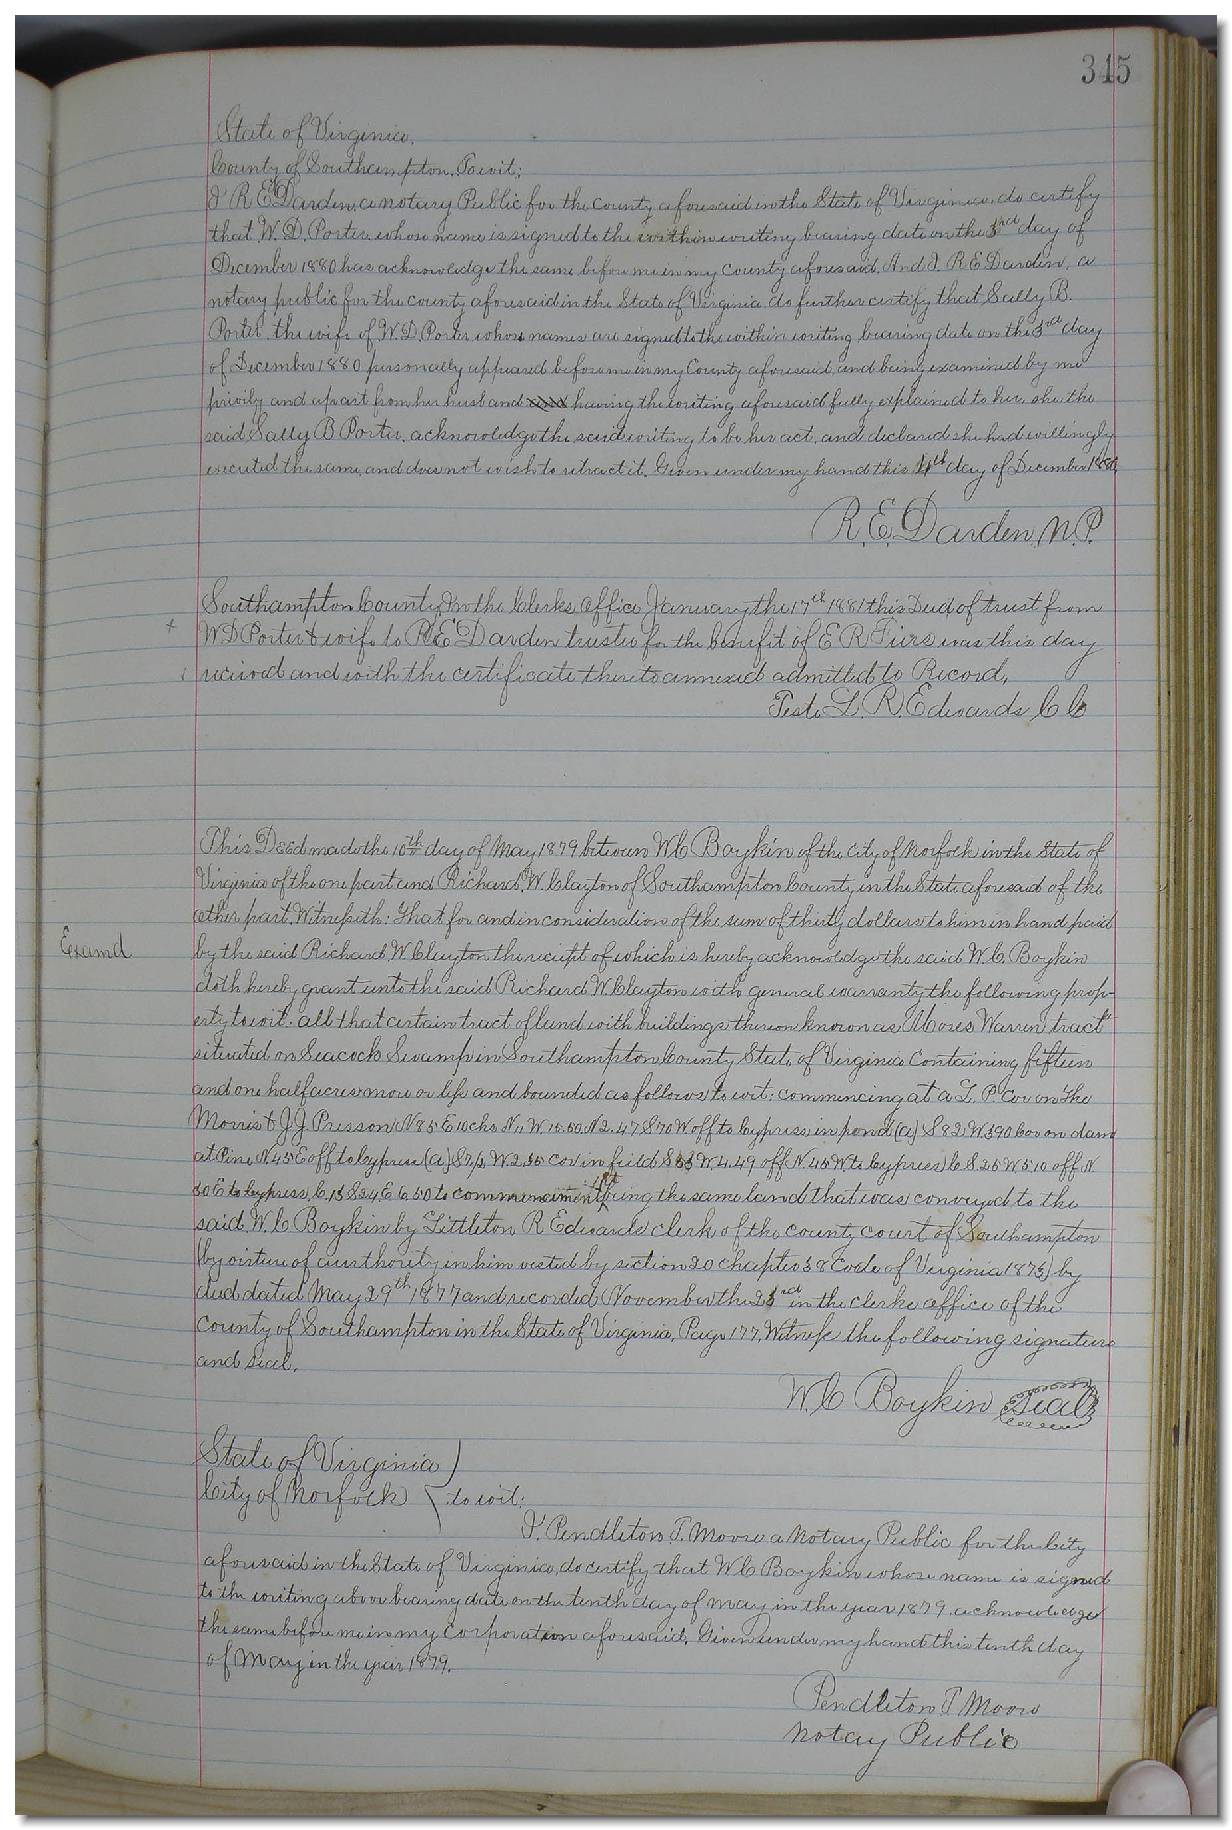 345
State of Virginia.
County of Southampton. Towit;
I R E Darden, a notary Public for the County aforesaid in the State of Virginia, do certify
that W. D. Porter whose name is signed to the within writing bearing date on the 3rd day of
December 1880 has acknowledge the same before me in my County aforesaid. And I R E Darden, a
notary public for the county aforesaid in the State of Virginia do further certify that Sally B.
Porter the wife of W. D. Porter whose names are signed to the within writing bearing date on the 3rd day
of December 1880 personally appeared before me in my County aforesaid and being examined by me
privily and apart from her husband having the writing aforesaid fully explained to her, she the
said Sally B Porter, acknowledge the said writing to be her act, and declared she had willingly
executed the same, and does not wish to retract it. Given under my hand this 4th day of December 1880
R. E. Darden, N. P.
Southampton County In the Clerks office January the 17th 1881 this Deed of trust from
W D Porter & wife to R E Darden trustee for the benefit of E R was this day
received and with the certificate thereto annexed admitted to Record,
Teste L. R. Edwards C C
This Deed made the 10th day of May 1879 between W C Boykin of the City of Norfock in the State of
Virginia of the one part and Richard W. Clayton of Southampton County in the State aforesaid of the
other part. Witnesseth: That for and in consideration of the sum of thirty dollars to him in hand paid
Examd
by the said Richard W Clayton the receipt of which is hereby acknowledge the said W. C. Boykin
doth hereby grant unto the said Richard W Clayton with general warranty the following prop-
erty towit: all that certain tract of land with buildings thereon known as Warren tract"
situated on Seacock Swamp in Southampton County State of Virginia containing fifteen
and one half acres more or less and bounded as follows to wit: commencing at a L. P Cor on the
Morris & J. J. Presson N 85 E 10 chs N W 15.50 N 2.47 S 70 W off to Cypress in pond (a) S 82 W 3.90 Cor on dam
at Pine N 45 E off to Cypress (a) W 2.35 cor in field W 4.49 off N 45 W to Cypress) C S 25 W 5.10 off N
50 E to Cypress, C 13 S 24 E 6.50 to commencement being the same land that was conveyed to the
said W. C Boykin by Littleton R Edwards clerk of the county court of Southampton
(by virtue of authority in him vested by section 20 chapter 38 Code of Virginia 1873) by
deed dated May 29th 1877 and recorded November the 23rd in the clerks office of the
county of Southampton in the State of Virginia, Page 177, Witness the following signature
and seal.
W. C Boykin Seal
State of Virginia
City of Norfock to wit:
I Pendleton T. Moore a Notary Public for the City
aforesaid in the State of Virginia, do certify that W C Boykin whose name is signed
to the writing above bearing date on the tenth day of May in the year 1879 acknowledged
the same before me in my Corporation aforesaid. Given under my hand this tenth day
of May in the year 1879.
Pendleton T Moore
Notay Public